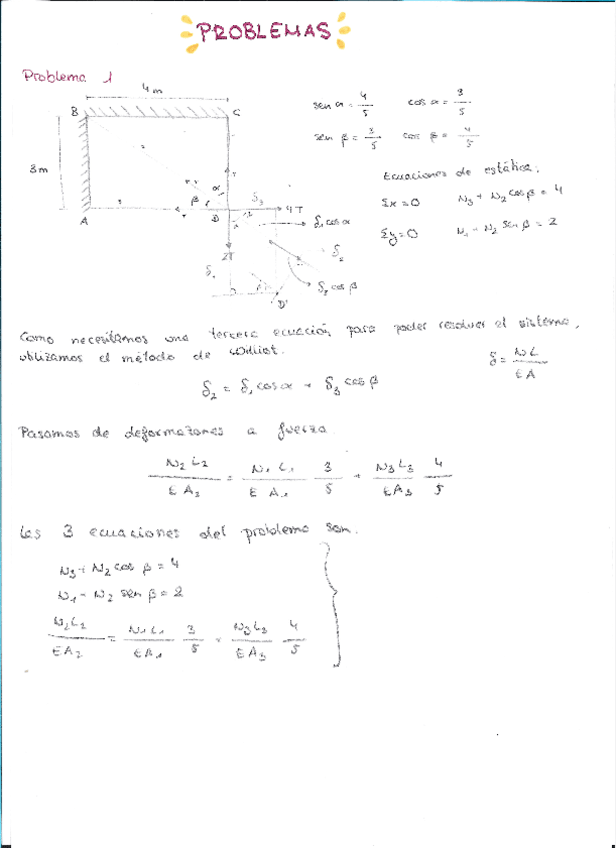 PROBLEMAS
Problema 1
4m
B
C
3m
A
D
D'
α
β
δ3
4T
δ1 cos α
δ2
δ3 cos β
2T
δ1
sen α = 4/5 cos α = 3/5
sen β = 3/5 cos β = 4/5
Ecuaciones de estática:
Σx=0 N3 + N2 cos β = 4
Σy=0 N1 + N2 sen β = 2
Como necesitamos una tercera ecuación para poder resolver el sistema,
utilizamos el método de Williot.
δ = NL / EA
δ2 = δ1 cos α + δ3 cos β
Pasamos de deformaciones a fuerza
N2 L2 / E A2 = N1 L1 / E A1 3/5 + N3 L3 / E A3 4/5
Las 3 ecuaciones del problema son:
N3 + N2 cos β = 4
N1 + N2 sen β = 2
N2 L2 / E A2 = N1 L1 / E A1 3/5 + N3 L3 / E A3 4/5